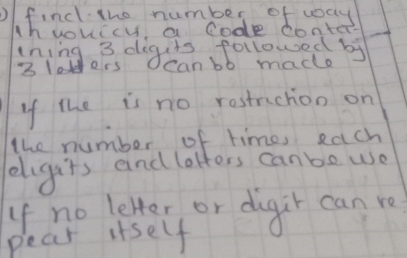 ) find the number of way
in which, a Code contai
ining 3 digits followed by
3 letters can be made
if the is no restriction on
the number of times each
digits and letters can be use
if no letter or digit can re
peat itself